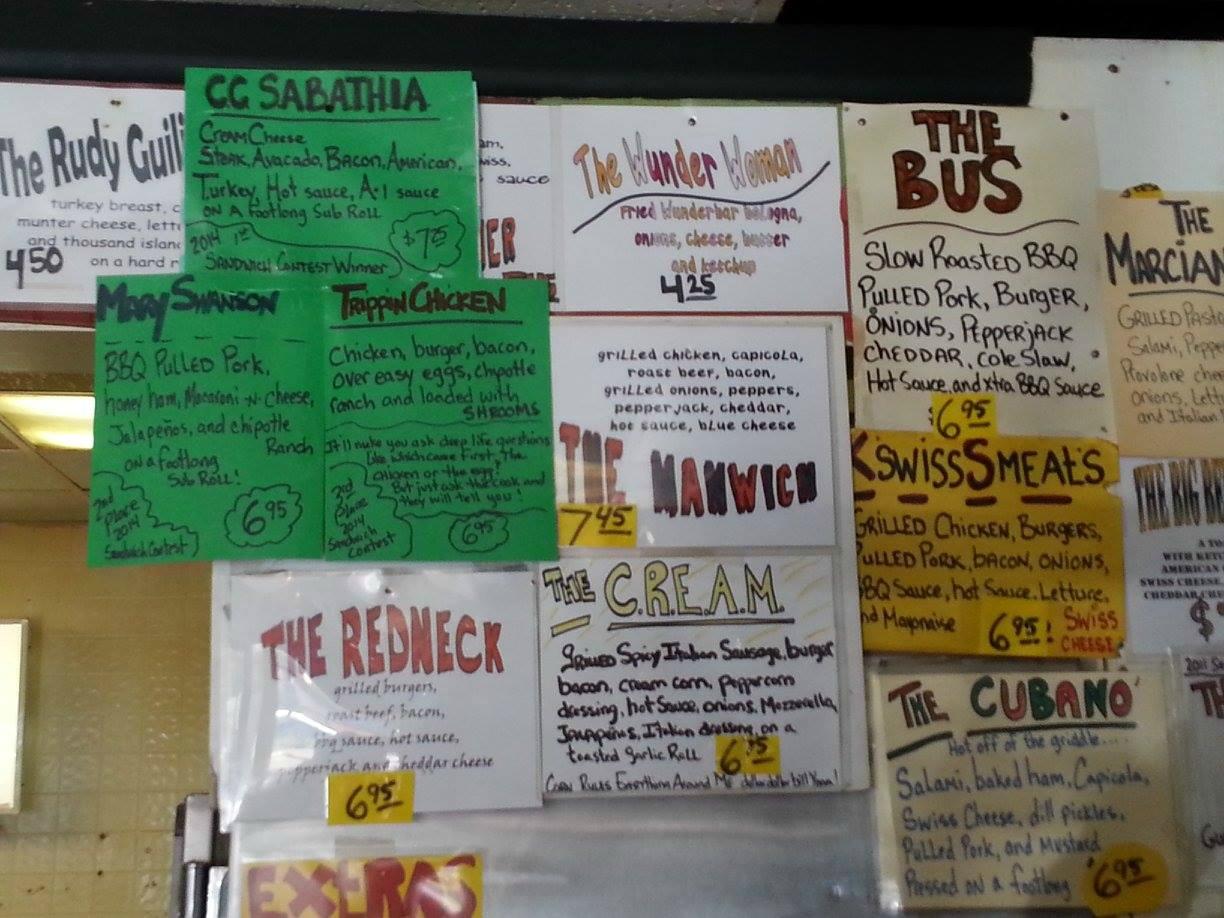 The Rudy
turkey breast,
munter cheese,
and thousand
on a hard
450
CC SABATHIA
CREAM Cheese
STEAK, Avacado, BACON, American,
Turkey, Hot sauce, A-1 sauce
ON A Footlong Sub Roll
2014 1st
SANDWICH CONTEST WINNER
$7.25
sauce
The Wunder Woman
Fried Wunderbar bologna,
onions, cheese, butter
and ketchup
4.25
THE
BUS
SLOW ROASTED BBQ
PULLED PORK, BURGER,
ONIONS, PEPPERJACK
CHEDDAR, COLE SLAW,
HOT SAUCE, and xtra BBQ SAUCE
$6.95
THE
GRILLED
Salami,
Provolone
onions,
and Italian
MARY SWANSON
BBQ Pulled Pork,
honey ham, Macaroni -N- Cheese,
Jalapeños, and chipotle
Ranch
ON a footlong
Sub Roll!
2nd
Place
2014
Sandwich Contest
6.95
TRAPPIN CHICKEN
Chicken, burger, bacon,
over easy eggs, chpotle
ranch and loaded with
SHROOMS
It'll make you ask deep life questions
like which came first, the
chicken or the egg?
But just ask the cook and
they will tell you!
3rd
Place
2014
Sandwich
contest
6.95
grilled chicken, capicola,
roast beef, bacon,
grilled onions, peppers,
pepperjack, cheddar,
hot sauce, blue cheese
THE MANWICH
7.45
SWISSSMEATS
GRILLED CHICKEN, BURGERS,
PULLED PORK, BACON, ONIONS,
BBQ Sauce, hot Sauce, Lettuce,
and Mayonaise
6.95!
SWISS
CHEESE!
THE BIG
WITH
AMERICAN
SWISS CHEESE
CHEDDAR
$
THE REDNECK
grilled burgers,
roast beef, bacon,
bbq sauce, hot sauce,
pepperjack and cheddar cheese
6.95
THE C.R.E.A.M.
grilled Spicy Italian Sausage, burger
bacon, cream corn, peppercorn
dressing, hot Sauce, onions, Mozzerella,
Italian dressing on a
toasted Garlic Roll
CORN Rules Everything Around Me
THE CUBANO
Hot off of the griddle....
Salami, baked ham, Capicola,
Swiss Cheese, dill pickles,
Pulled Pork, and Mustard
Pressed on a footlong
6.95
2011
EXTRAS